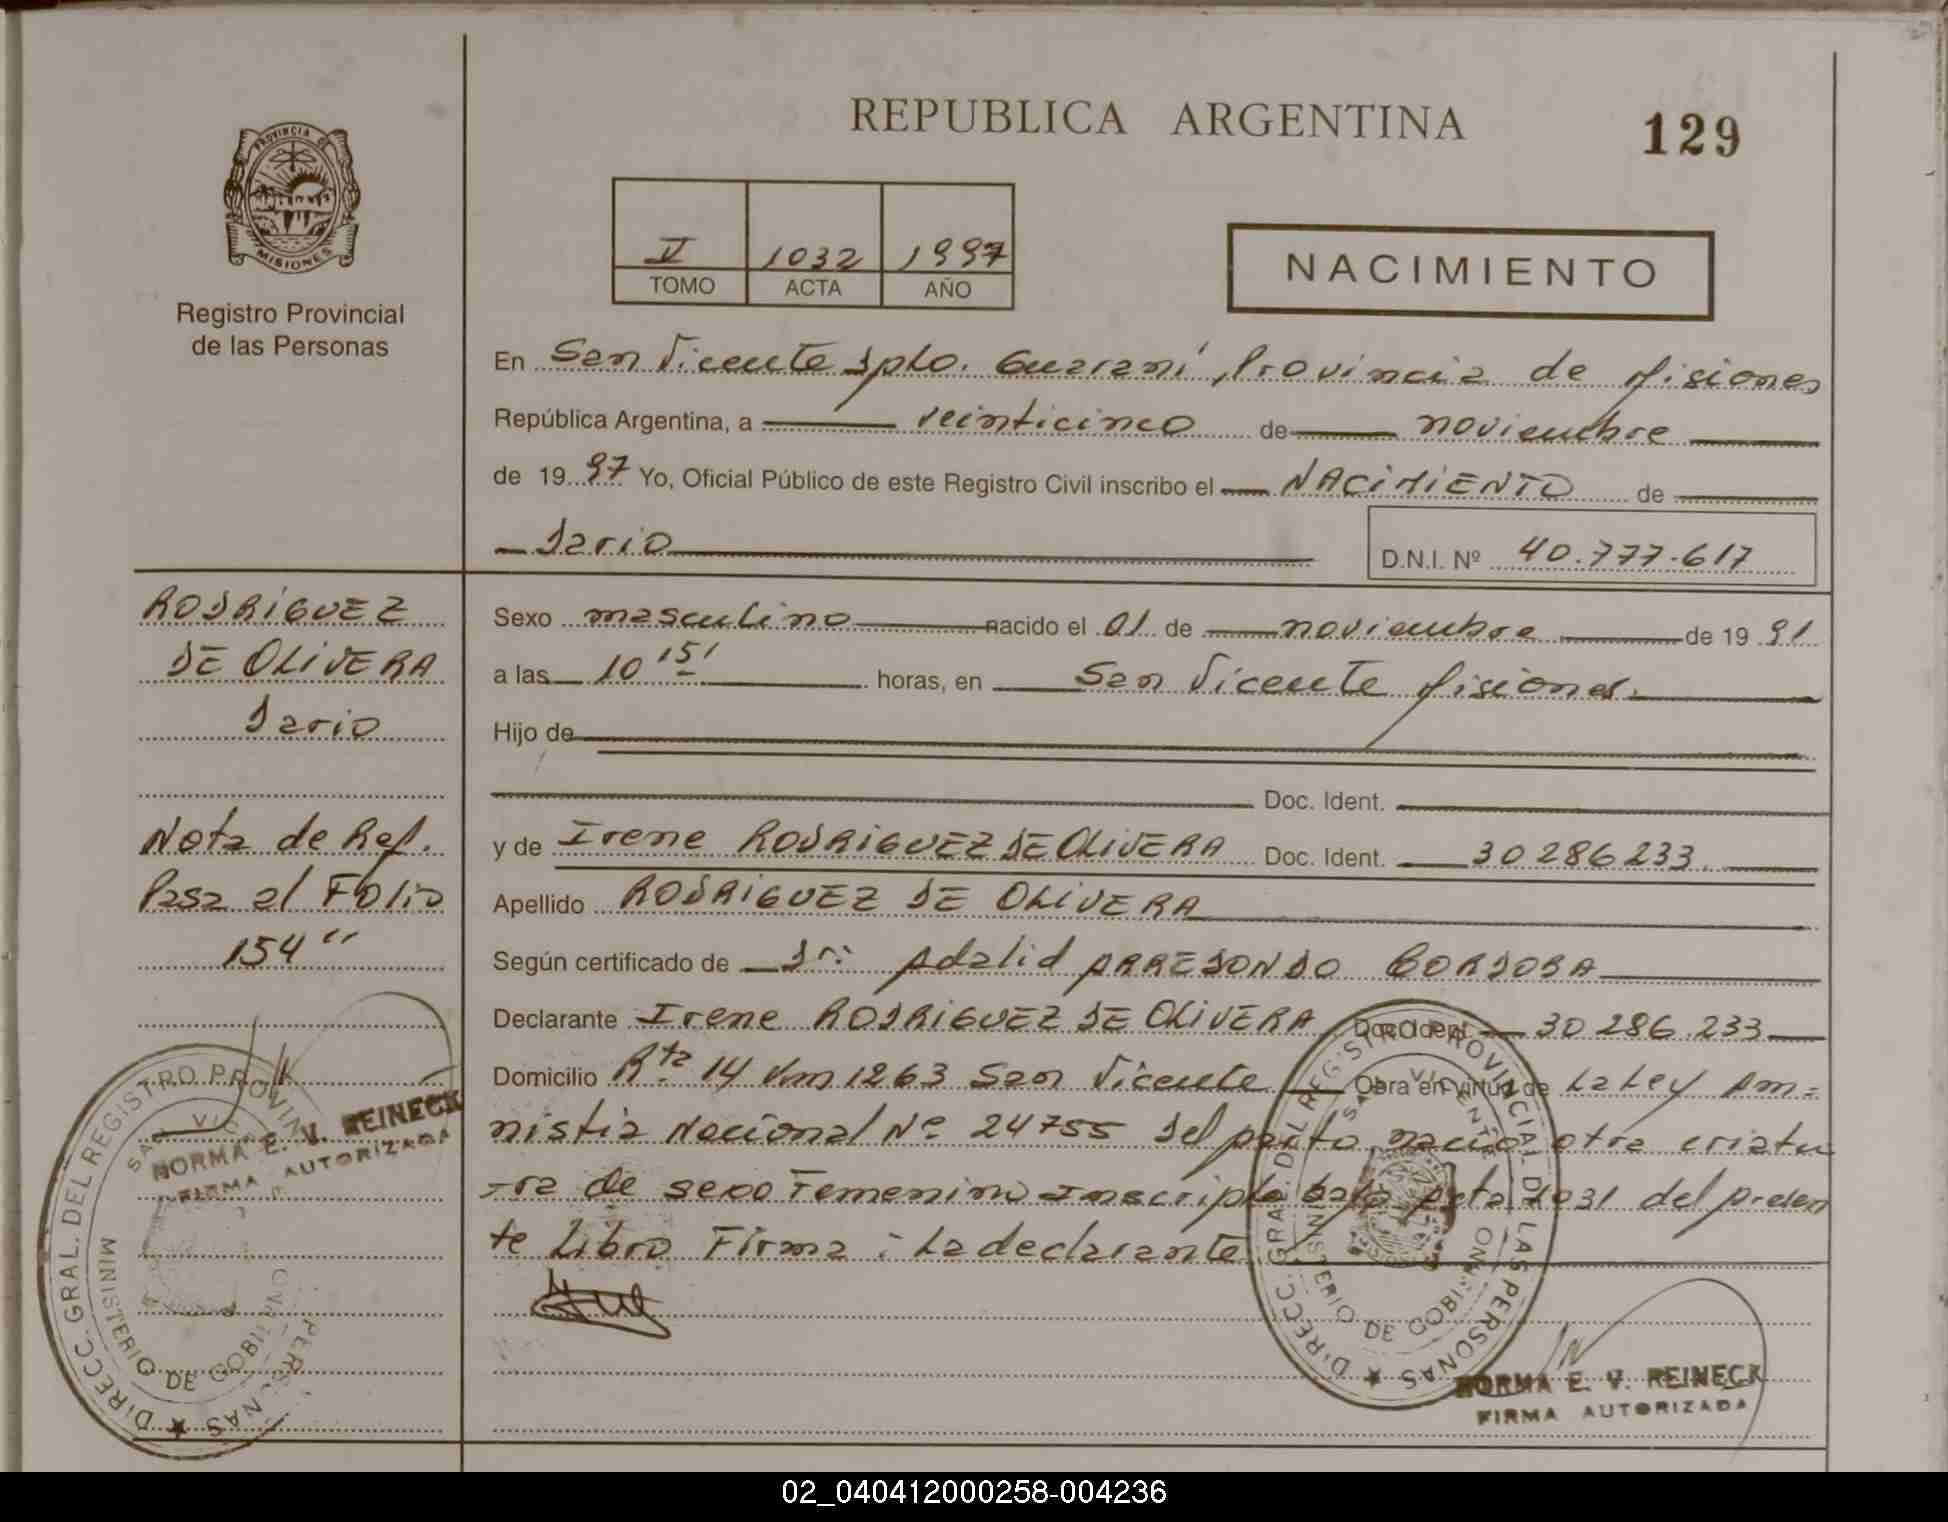 REPUBLICA ARGENTINA
129
PROVINCIA DE
MISIONES
Registro Provincial
de las Personas
V 1032 1997
TOMO ACTA AÑO
NACIMIENTO
En San Vicente Dpto. Guaraní, Provincia de Misiones
República Argentina, a veinticinco de noviembre
de 1997 Yo, Oficial Público de este Registro Civil inscribo el NACIMIENTO de
Dario
D.N.I. Nº 40.777.617
RODRIGUEZ
DE OLIVERA
Dario
Nota de Ref.
Pasa al Folio
154"
Sexo masculino nacido el 01 de noviembre de 1991
a las 10'15' horas, en San Vicente Misiones.
Hijo de
Doc. Ident.
y de Irene RODRIGUEZ DE OLIVERA Doc. Ident. 30286233.
Apellido RODRIGUEZ DE OLIVERA
Según certificado de Dr: Adalid ARREDONDO CORDOBA
Declarante Irene RODRIGUEZ DE OLIVERA Doc. Ident. 30286.233
Domicilio Rta 14 Km 1263 San Vicente Obra en virtud de La Ley Am=
nistia Nacional Nº 24755 Del parto nacio otra criatu
ra de sexo Femenino Inscripta bajo Acta 1031 del presen
te Libro Firma: La declarante
DIRECC. GRAL. DEL REGISTRO PROVINCIAL DE LAS PERSONAS
SAN VICENTE
MINISTERIO DE GOBIERNO
NORMA E. V. REINECK
FIRMA AUTORIZADA
DIRECC. GRAL. DEL REGISTRO PROVIN PERSONAS
MINISTERIO DE GOBIERNO
NORMA E. V. REINECK
FIRMA AUTORIZADA
02_040412000258-004236